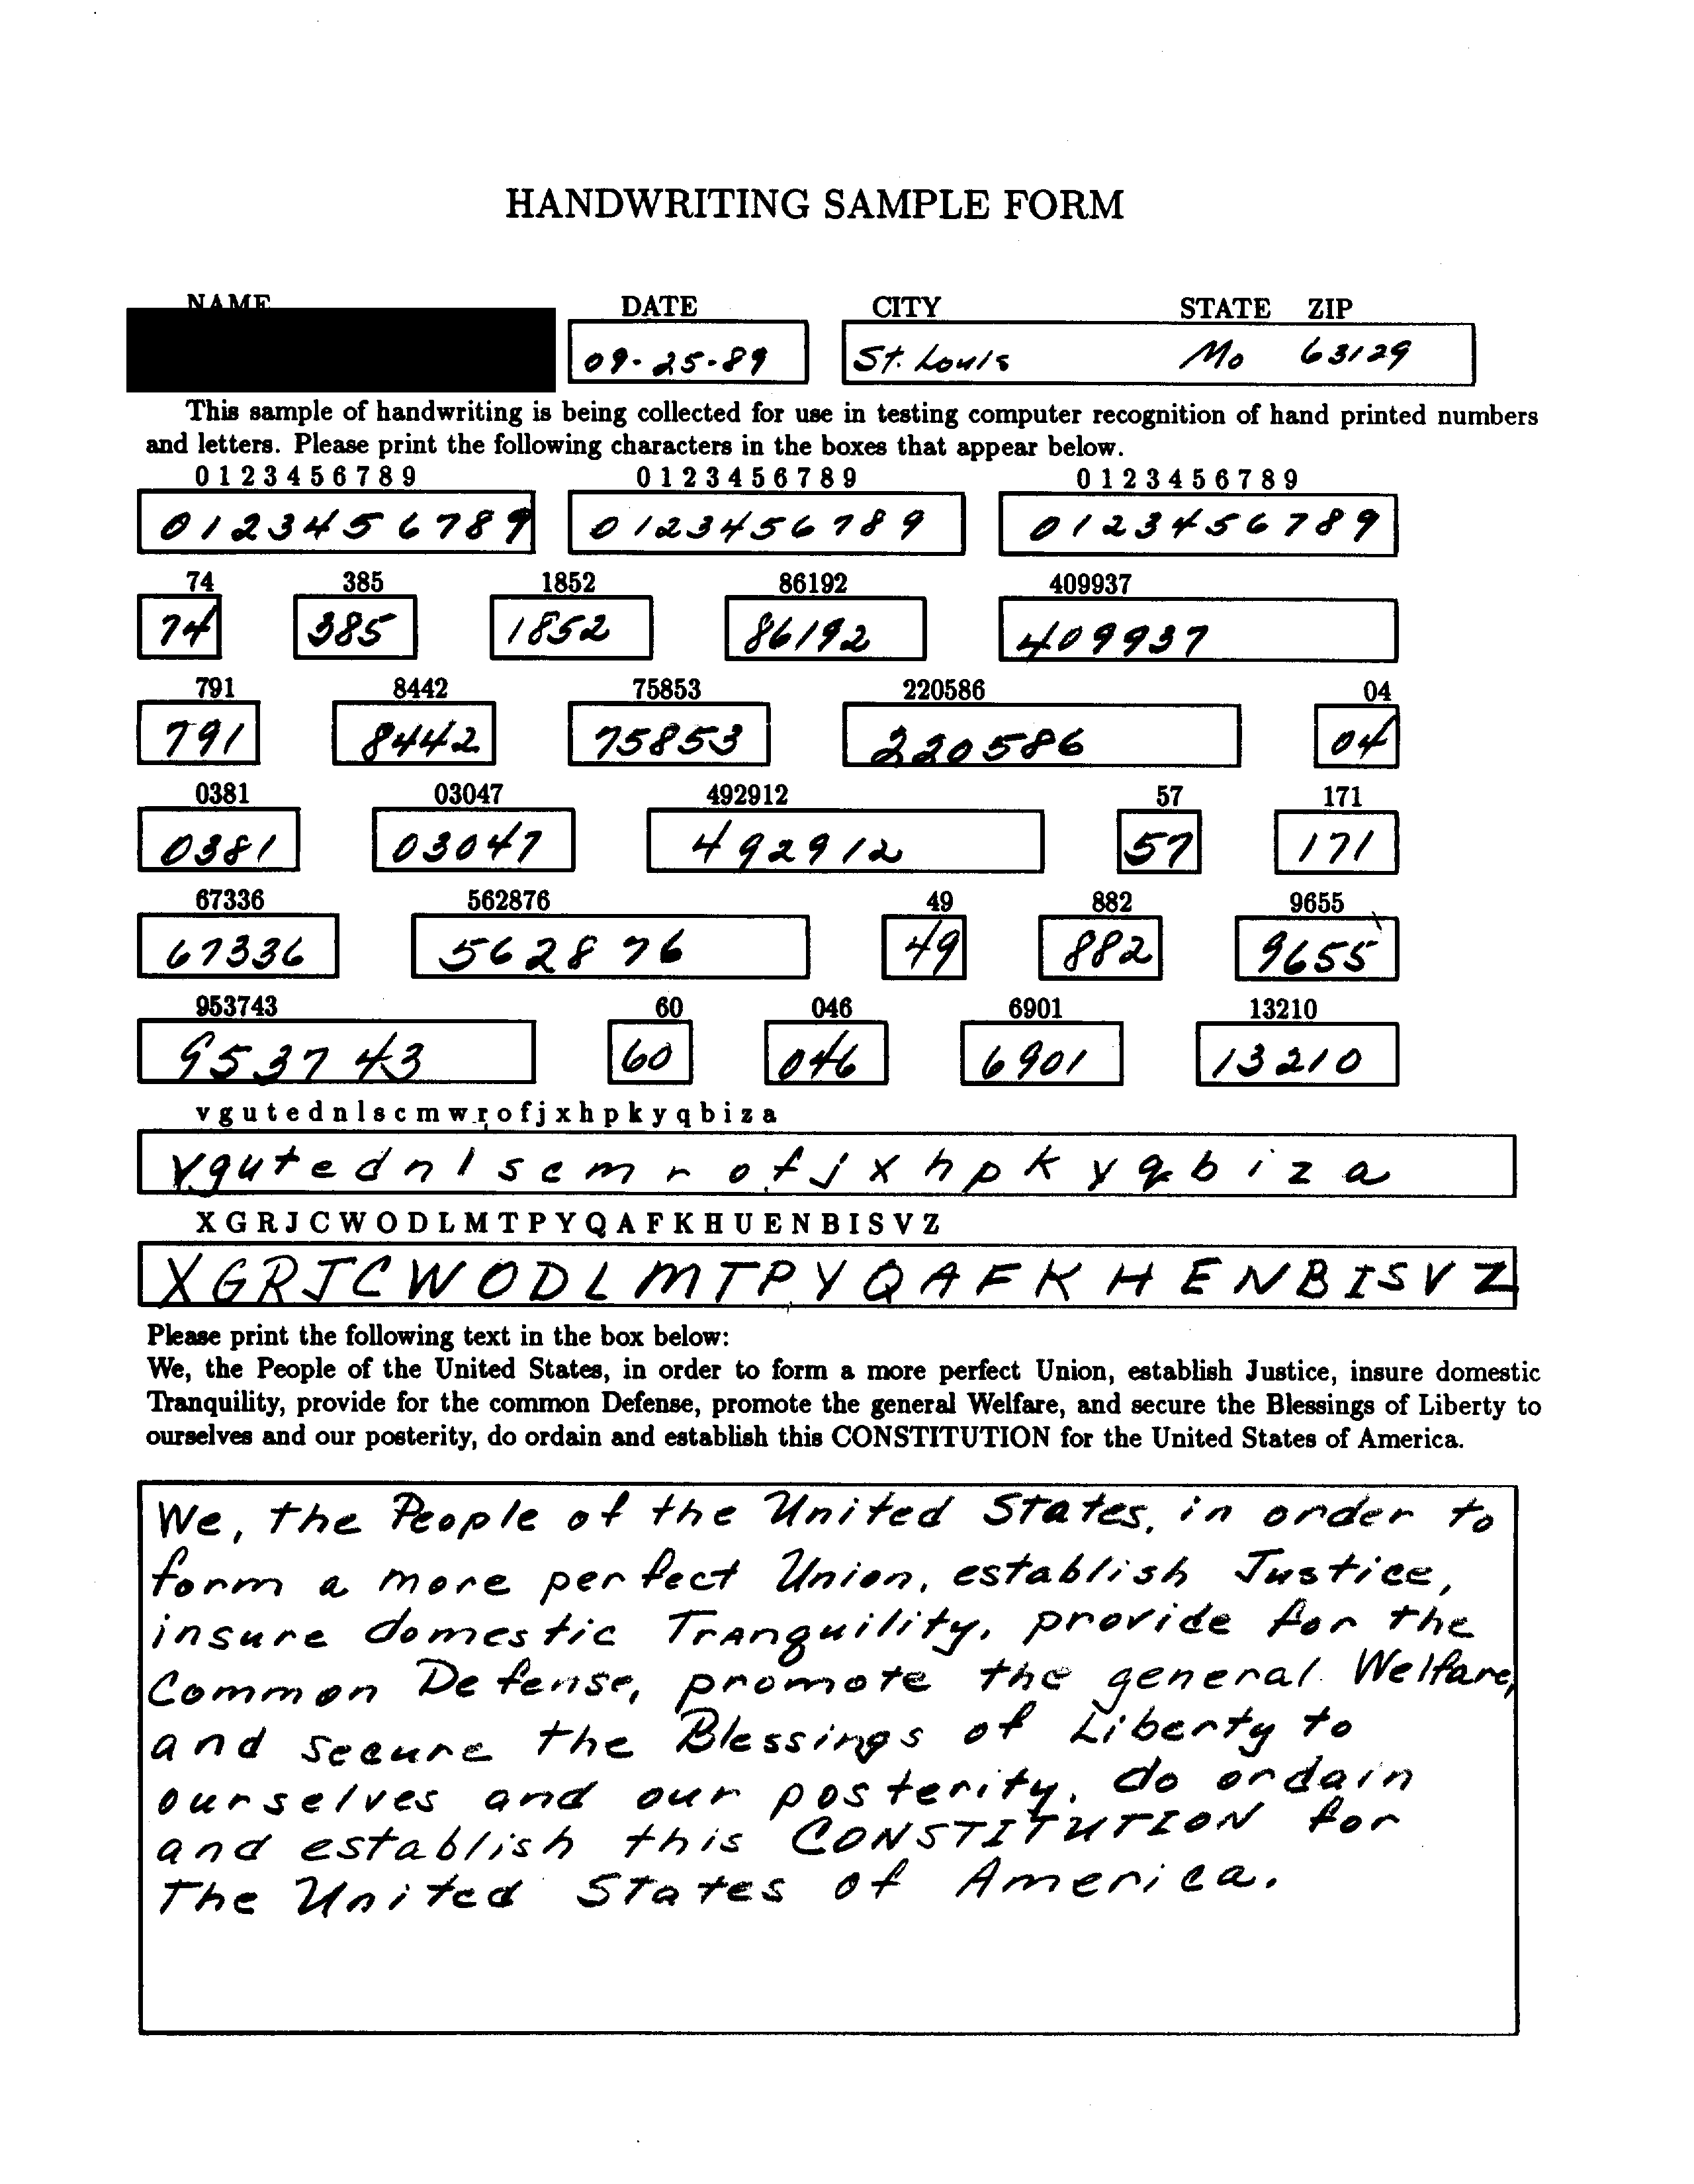 HANDWRITING SAMPLE FORM
NAME DATE CITY STATE ZIP
09-25-89 St. Louis Mo 63129
This sample of handwriting is being collected for use in testing computer recognition of hand printed numbers
and letters. Please print the following characters in the boxes that appear below.
0 1 2 3 4 5 6 7 8 9 0 1 2 3 4 5 6 7 8 9 0 1 2 3 4 5 6 7 8 9
0 1 2 3 4 5 6 7 8 9 0 1 2 3 4 5 6 7 8 9 0 1 2 3 4 5 6 7 8 9
74 385 1852 86192 409937
74 385 1852 86192 409937
791 8442 75853 220586 04
791 8442 75853 220586 04
0381 03047 492912 57 171
0381 03047 492912 57 171
67336 562876 49 882 9655
67336 562876 49 882 9655
953743 60 046 6901 13210
953743 60 046 6901 13210
v g u t e d n l s c m w r o f j x h p k y q b i z a
v g u t e d n l s c m r o f j x h p k y q b i z a
X G R J C W O D L M T P Y Q A F K H U E N B I S V Z
X G R J C W O D L M T P Y Q A F K H E N B I S V Z
Please print the following text in the box below:
We, the People of the United States, in order to form a more perfect Union, establish Justice, insure domestic
Tranquility, provide for the common Defense, promote the general Welfare, and secure the Blessings of Liberty to
ourselves and our posterity, do ordain and establish this CONSTITUTION for the United States of America.
We, the People of the United States, in order to
form a more perfect Union, establish Justice,
insure domestic Tranquility, provide for the
Common Defense, promote the general Welfare,
and secure the Blessings of Liberty to
ourselves and our posterity, do ordain
and establish this CONSTITUTION for
The United States of America.